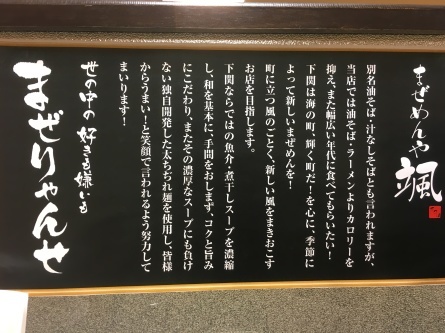 まぜめんや 颯
別名油そば・汁なしそばとも言われますが、
当店では油そば・ラーメンよりカロリーを
抑え、また幅広い年代に食べてもらいたい!
下関は海の町、輝く町だ!を心に、季節に
よって新しいまぜめんを!
町に立つ風のごとく、新しい風をまきおこす
お店を目指します。
下関ならではの魚介・煮干しスープを濃縮
し、和を基本に、手間をおしまず、コクと旨み
にこだわり、またその濃厚なスープにも負け
ない独自開発した太ちぢれ麺を使用し、皆様
からうまい!と笑顔で言われるよう努力して
まいります!
世の中の 好きも嫌いも
まぜりゃんせ